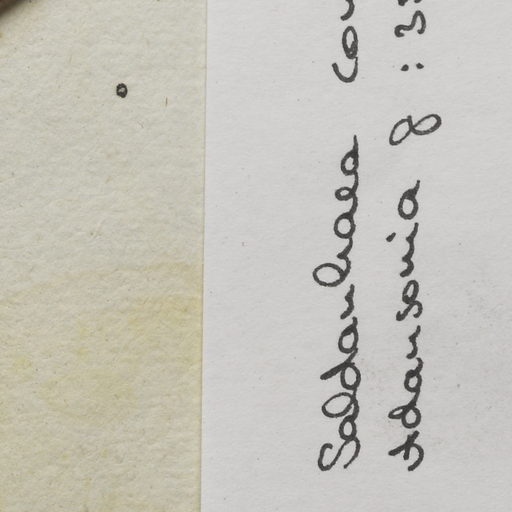 Saldanhaea
Adansonia 8 :